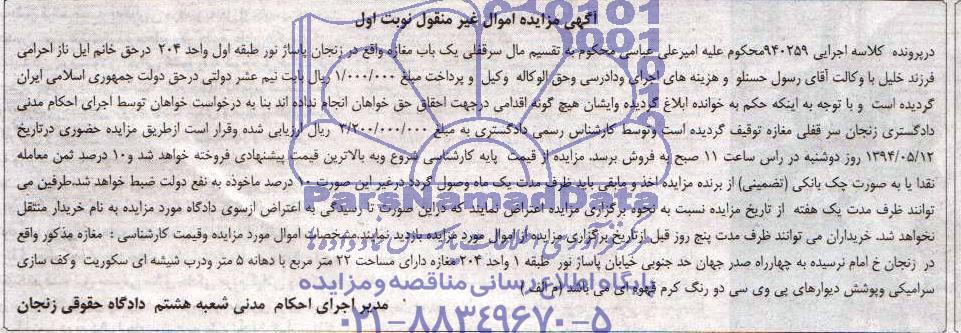 آگهی مزایده اموال غیر منقول نوبت اول
درپرونده کلاسه اجرایی ۹۴۰۲۵۹محکوم علیه امیرعلی عباسی محکوم به تقسیم مال سرقفلی یک باب مغازه واقع در زنجان پاساژ نور طبقه اول واحد ۲۰۴ درحق خانم ایل ناز احرامی
فرزند خلیل با وکالت آقای رسول حسنلو و هزینه های اجرای ودادرسی وحق الوکاله وکیل و پرداخت مبلغ ۱/۰۰۰/۰۰۰ ریال بابت نیم عشر دولتی درحق دولت جمهوری اسلامی ایران
گردیده است و با توجه به اینکه حکم به خوانده ابلاغ گردیده وایشان هیچ گونه اقدامی درجهت احقاق حق خواهان انجام نداده اند بنا به درخواست خواهان توسط اجرای احکام مدنی
دادگستری زنجان سر قفلی مغازه توقیف گردیده است وتوسط کارشناس رسمی دادگستری به مبلغ ۲/۲۰۰/۰۰۰/۰۰۰ ریال ارزیابی شده وقرار است ازطریق مزایده حضوری درتاریخ
۱۳۹۴/۰۵/۱۲ روز دوشنبه در راس ساعت ۱۱ صبح به فروش برسد. مزایده از قیمت پایه کارشناسی شروع وبه بالاترین قیمت پیشنهادی فروخته خواهد شد و۱۰ درصد ثمن معامله
نقدا یا به صورت چک بانکی (تضمینی) از برنده مزایده اخذ و مابقی باید ظرف مدت یک ماه وصول گردد درغیر این صورت ۱۰ درصد ماخوذه به نفع دولت ضبط خواهد شد.طرفین می
توانند ظرف مدت یک هفته از تاریخ مزایده نسبت به نحوه برگزاری مزایده اعتراض نمایند که دراین صورت تا رسیدگی به اعتراض ازسوی دادگاه مورد مزایده به نام خریدار منتقل
نخواهد شد. خریداران می توانند ظرف مدت پنج روز قبل ازتاریخ برگزاری مزایده از اموال مورد مزایده بازدید نمایند.مشخصات اموال مورد مزایده وقیمت کارشناسی : مغازه مذکور واقع
در زنجان خ امام نرسیده به چهارراه صدر جهان حد جنوبی خیابان پاساژ نور طبقه ۱ واحد ۲۰۴ مغازه دارای مساحت ۲۲ متر مربع با دهانه ۵ متر ودرب شیشه ای سکوریت وکف سازی
سرامیکی وپوشش دیوارهای پی وی سی دو رنگ کرم قهوه ای می باشد (م الف )
مدیر اجرای احکام مدنی شعبه هشتم دادگاه حقوقی زنجان
ParsNamadData
پایگاه اطلاع رسانی مناقصه و مزایده
۰۲۱-۸۸۳۴۹۶۷۰-۵